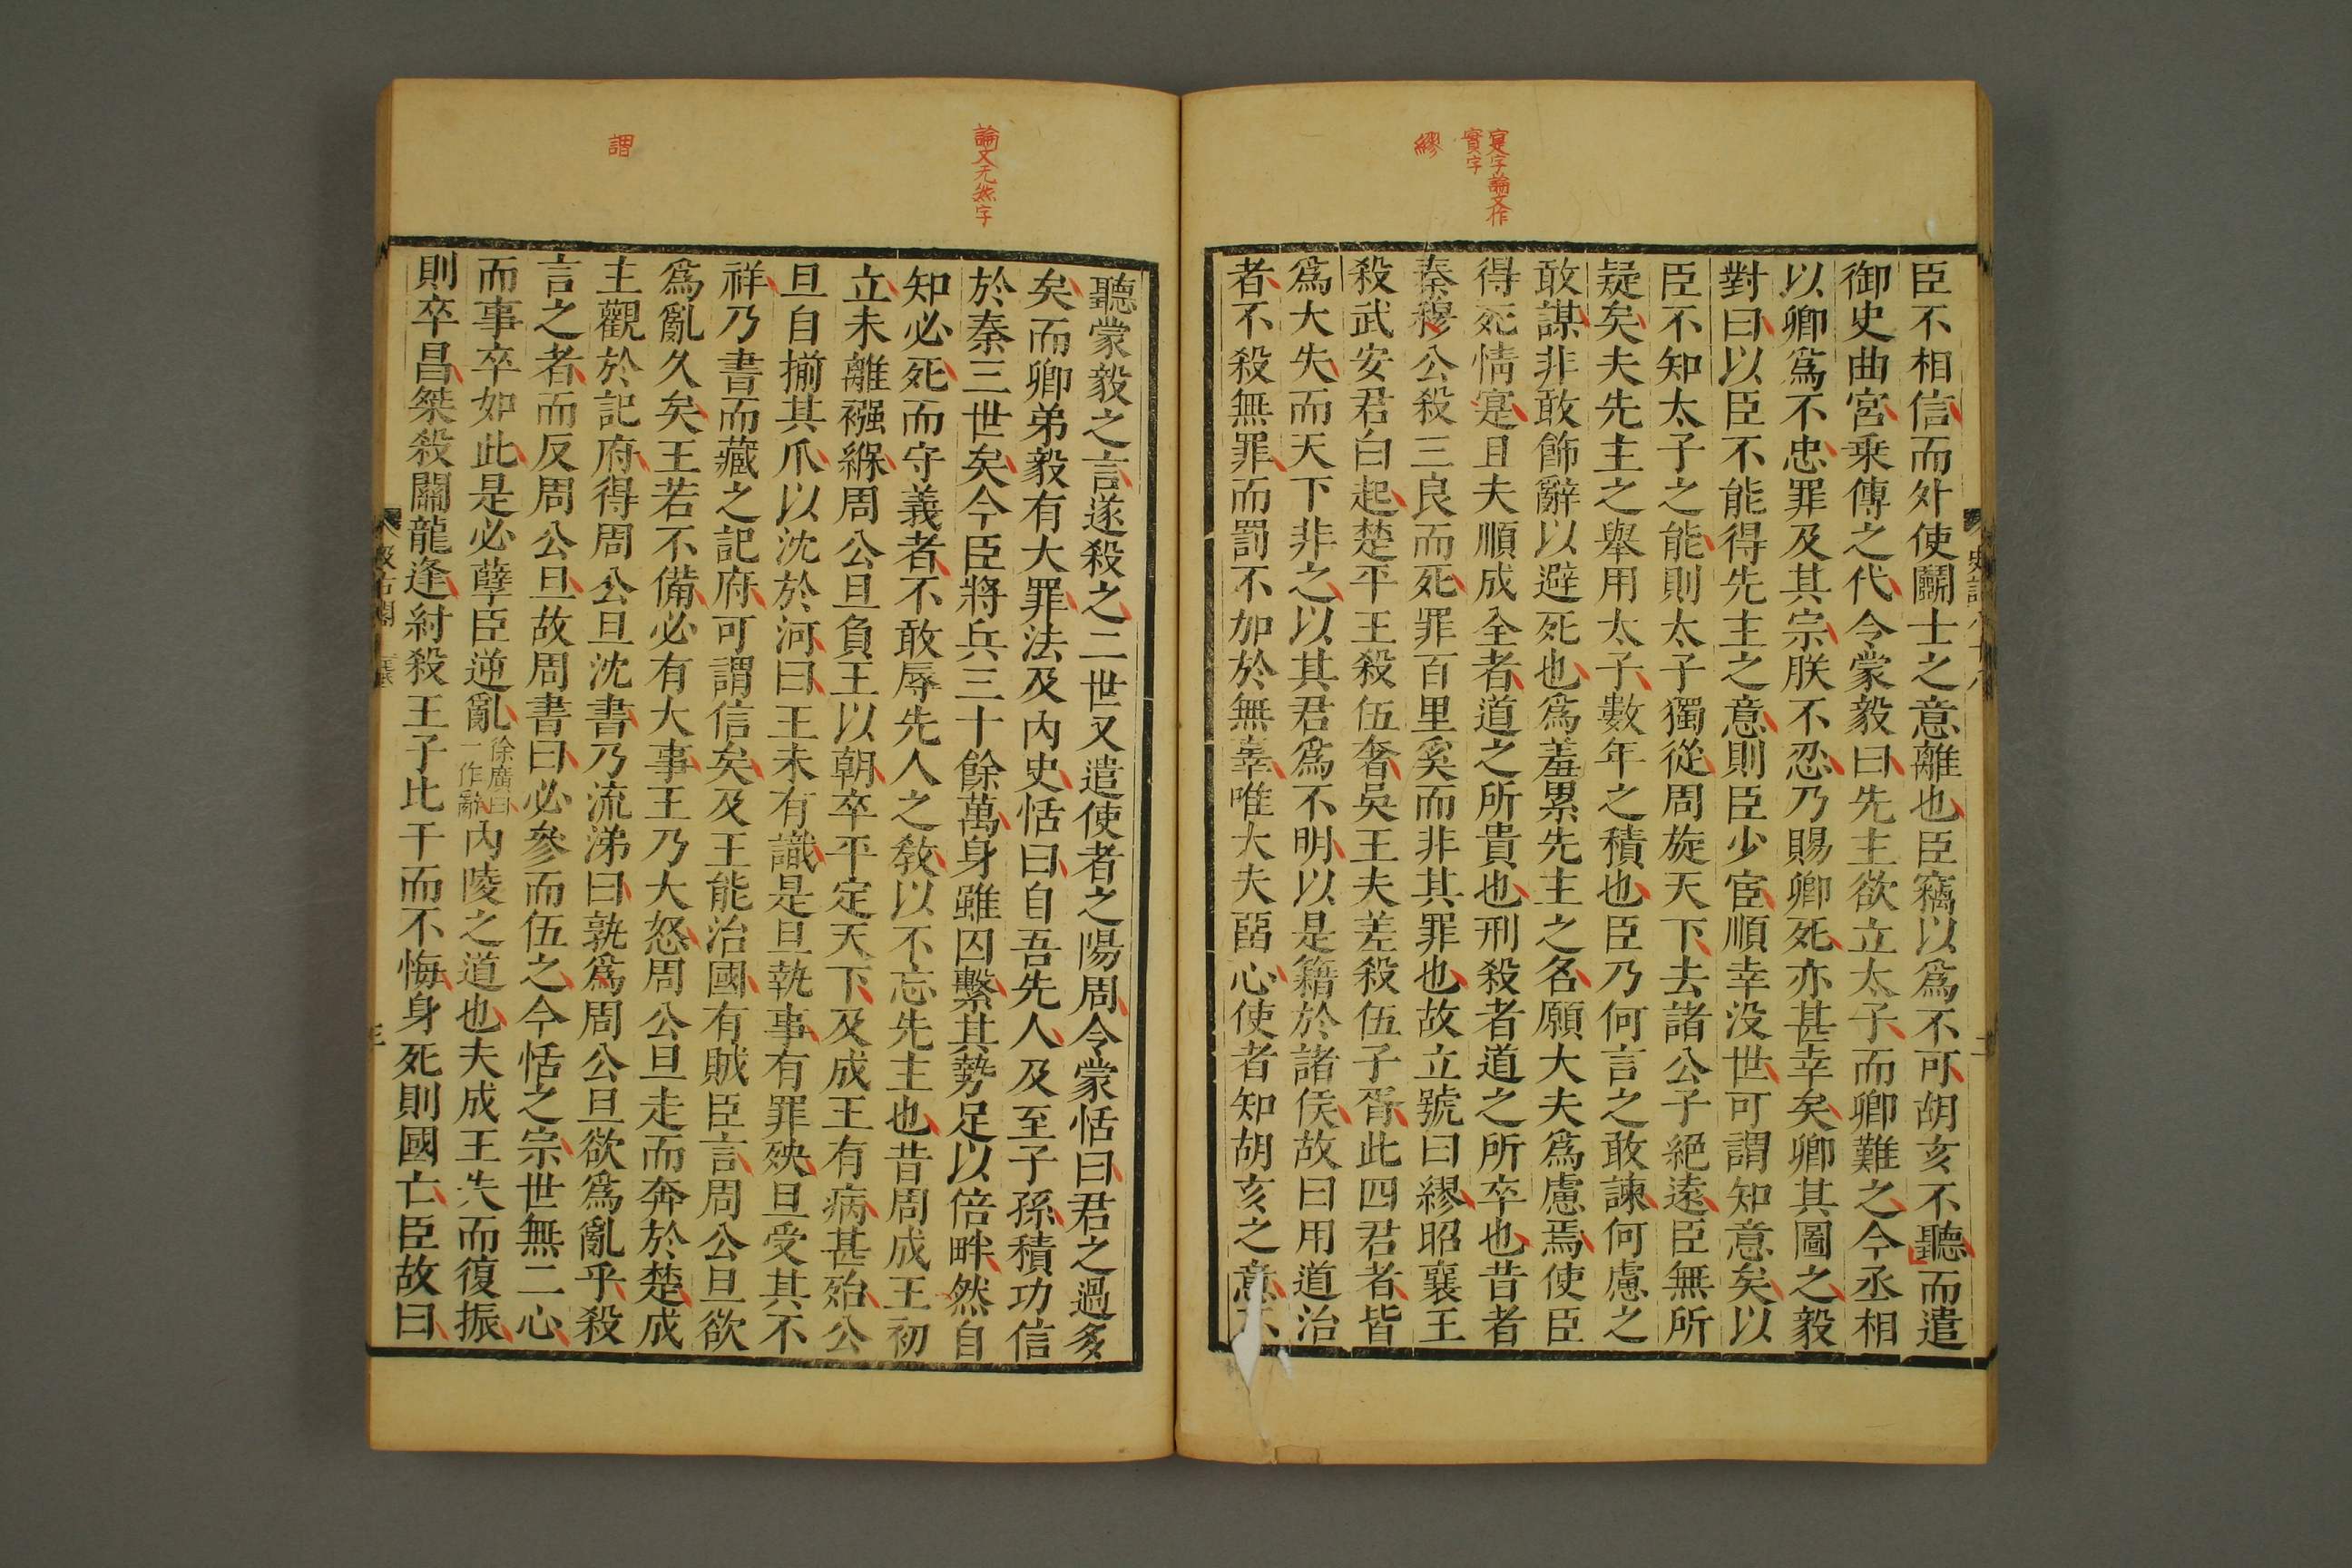 寔字論文作
實字
繆
臣不相信而外使鬬士之意離也臣竊以爲不可胡亥不聽而遣
御史曲宮乗傳之代令蒙毅曰先主欲立太子而卿難之今丞相
以卿爲不忠罪及其宗朕不忍乃賜卿死亦甚幸矣卿其圖之毅
對曰以臣不能得先主之意則臣少宦順幸没世可謂知意矣以
臣不知太子之能則太子獨從周旋天下去諸公子絕遠臣無所
疑矣夫先主之舉用太子數年之積也臣乃何言之敢諫何慮之
敢謀非敢飾辭以避死也爲羞累先主之名願大夫爲慮焉使臣
得死情寔且夫順成全者道之所貴也刑殺者道之所卒也昔者
秦穆公殺三良而死罪百里奚而非其罪也故立號曰繆昭襄王
殺武安君白起楚平王殺伍奢吳王夫差殺伍子胥此四君者皆
爲大失而天下非之以其君爲不明以是籍於諸侯故曰用道治
者不殺無罪而罰不加於無辜唯大夫留心使者知胡亥之意不
史記八十八
二
論文无然字
謂
聽蒙毅之言遂殺之二世又遣使者之陽周令蒙恬曰君之過多
矣而卿弟毅有大罪法及内史恬曰自吾先人及至子孫積功信
於秦三世矣今臣將兵三十餘萬身雖囚繫其勢足以倍畔然自
知必死而守義者不敢辱先人之敎以不忘先主也昔周成王初
立未離襁緥周公旦負王以朝卒平定天下及成王有病甚殆公
旦自揃其爪以沈於河曰王未有識是旦執事有罪殃旦受其不
祥乃書而藏之記府可謂信矣及王能治國有賊臣言周公旦欲
爲亂久矣王若不備必有大事王乃大怒周公旦走而奔於楚成
王觀於記府得周公旦沈書乃流涕曰孰爲周公旦欲爲亂乎殺
言之者而反周公旦故周書曰必參而伍之今恬之宗世無二心
而事卒如此是必孽臣逆亂徐廣曰一作辭内陵之道也夫成王失而復振
則卒昌桀殺關龍逄紂殺王子比干而不悔身死則國亡臣故曰
汲古閣
三